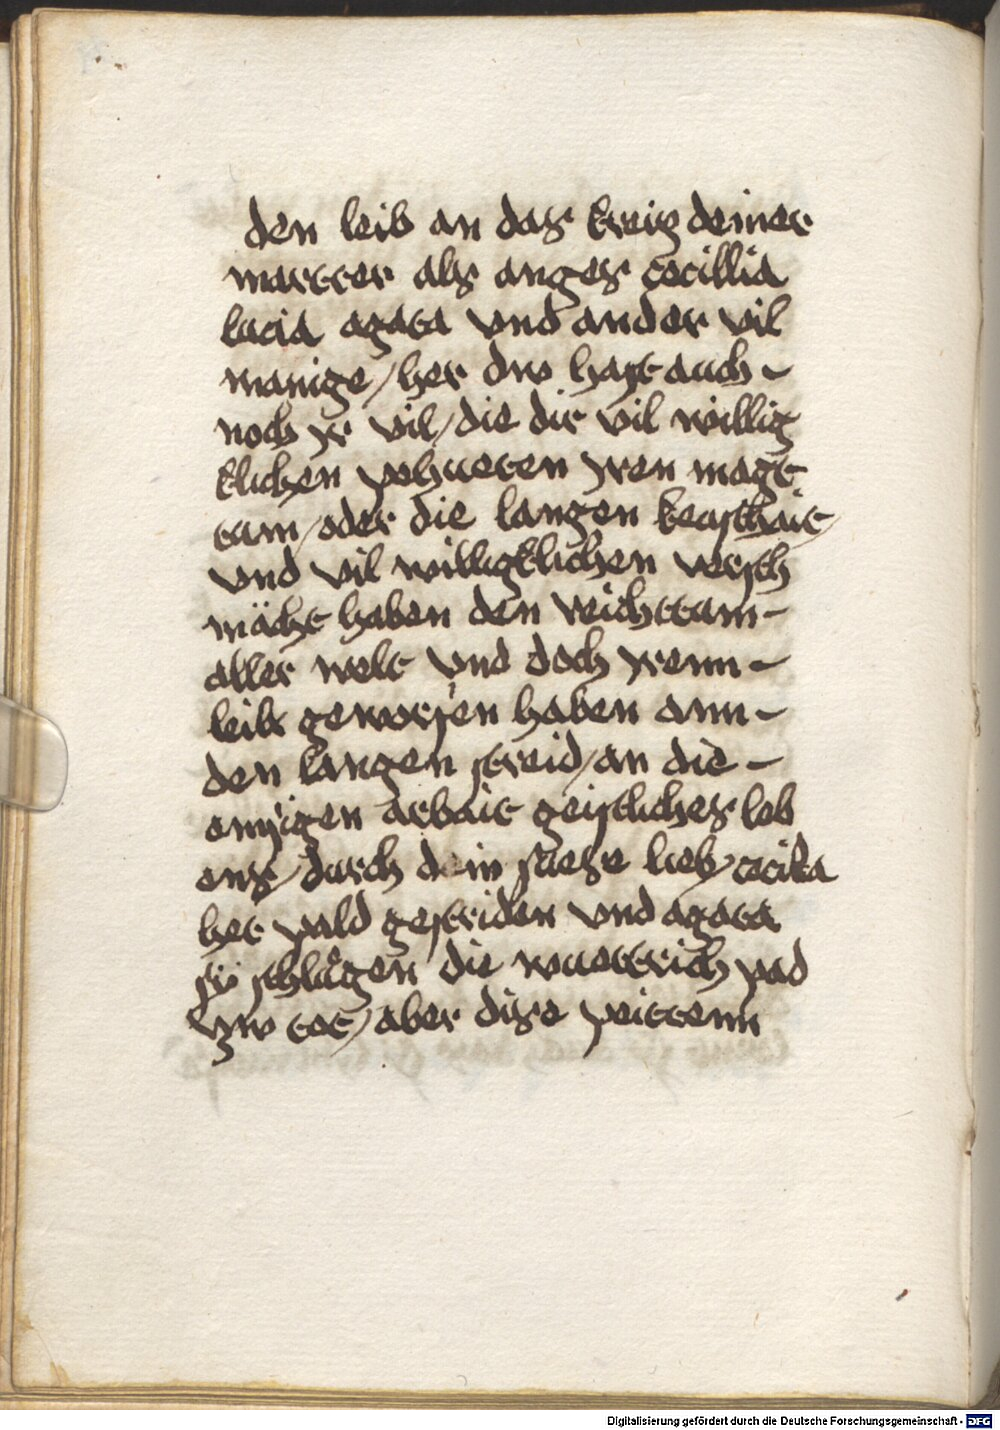 den leib an das kreiz deiner
martter als anges cecillia
lucia agata vnd ander vil
manige / her dw hast auch -
noch yr vil / die dir vil willig
klichen pehueten yren magt
tum / oder die langen keuschait /
vnd vil willigklichen versch
mächt haben den reichttum -
aller welt vnd doch yrenn -
leib geworfen haben ann -
den langen streid / an die -
emsigen arbait geistliches leb
ens / durch dein suesse lieb / cecilia
het pald gestriden vnd agata
sy schluegen die wuettrich pad
zw tot / aber dise peittenn
Digitalisierung gefördert durch die Deutsche Forschungsgemeinschaft - DFG